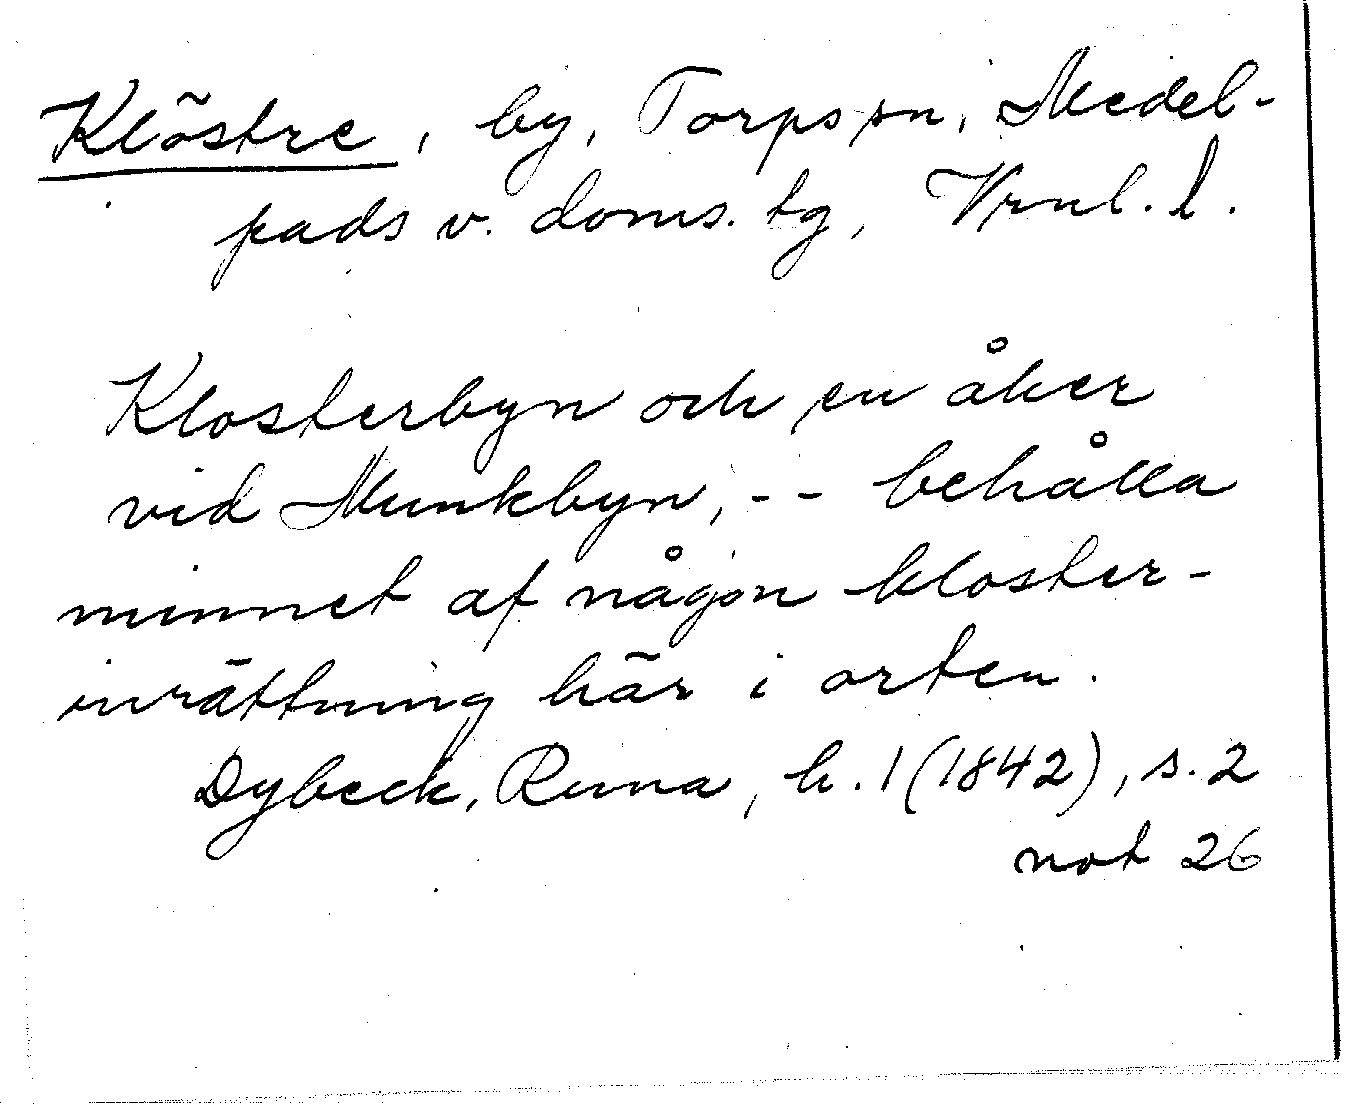 Klöstre, by, Torps sn, Medel-
pads v. doms. tg, Vrnl. l.
Klosterbyn och en åker
vid Munkbyn, -- behålla
minnet af någon kloster-
inrättning här i orten.
Dybeck, Runa, h. 1 (1842), s. 2
not 26